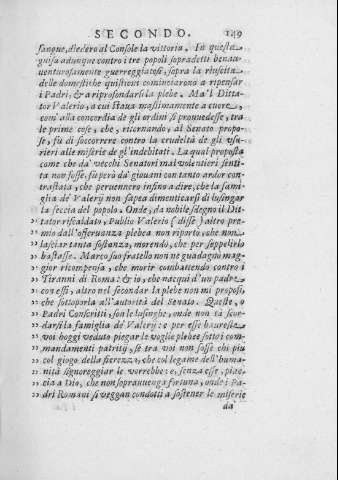 SECONDO. 149
sangue, diedero al Console la vittoria. In questa
guisa adunque contro i tre popoli sopradetti benau
venturosamente guerreggiatosi, sopra la riuscita
delle domestiche quistioni cominciarono a ripensar
i Padri, & a riprofondarsi la plebe. Ma'l Ditta
tor Valerio, a cui staua massimamente a cuore,
com' alla concordia de gli ordini si prouuedesse, tra
le prime cose, che, ritornando, al Senato propo-
se, fù di soccorrere contro la crudeltà de gli vsu
rieri alle miserie de gl'indebitati. La qual proposta
come che da' vecchi Senatori mal volentieri senti
ta non fosse, fù però da' giouani con tanto ardor con
trastata, che peruennero infino a dire, che la fami
glia de' Valerij non sapea dimenticarsi di lusingar
la feccia del popolo. Onde, da nobile sdegno il Dit
tator riscaldato, Publio Valerio (disse) altro pre-
mio dall'osseruanza plebea non riportò, che non
lasciar tanta sostanza, morendo, che per seppelirlo
bastasse. Marco suo fratello non ne guadagnò mag
gior ricompensa, che morir combattendo contro i
Tiranni di Roma: & io, che nacqui d'un padre
con essi, altro nel secondar la plebe non mi proposi,
che sottoporla all'autorità del Senato. Queste, o
Padri Conscritti, son le lusinghe, onde non sà scor
darsi la famiglia de' Valerij: e per esse haureste
voi hoggi veduto piegar le voglie plebee sotto i com
mandamenti patritij, se tra voi non fosse chi più
col giogo della fierezza, che col legame dell'huma-
nità signoreggiar le vorrebbe: e, senza esse, piac-
cia a Dio, che non soprauuenga fortuna, onde i Pa
dri Romani si veggan condotti a sostener le miserie
da